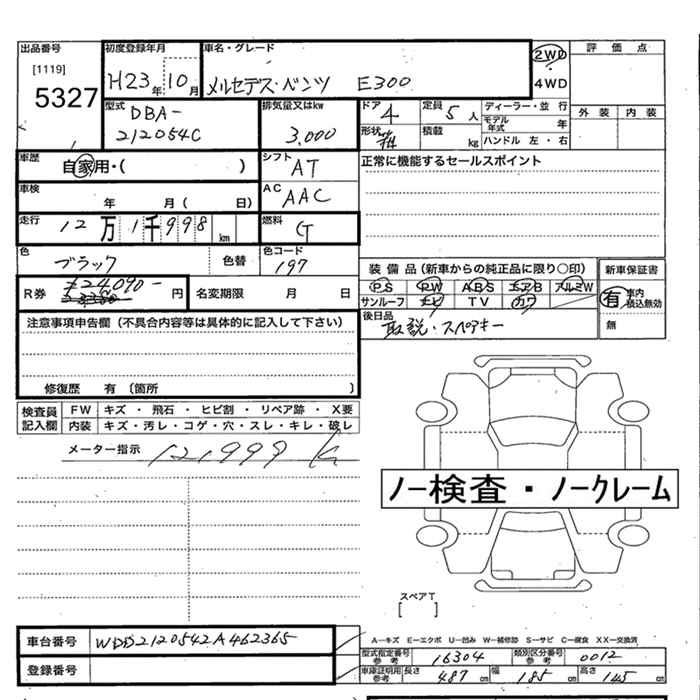 出品番号 初度登録年月 車名・グレード 2WD 評価点
[1119] ・
5327 H23年 10月 メルセデス・ベンツ E300 4WD 外装 内装
型式 排気量又はkw ドア 定員 ディーラー・並行
DBA- 4 5人 モデル年式 年
212054C 3.000 形状 積載 kg ハンドル 左・右
車歴 自家用・( ) シフト AT 正常に機能するセールスポイント
車検 年 月( 日) AC AAC
走行 12万1千998km 燃料 G
色 ブラック 色替 色コード 197 装備品(新車からの純正品に限り○印) 新車保証書
R券 ¥24,090- 円 名変期限 月 日 PS PW ABS エアB アルミW 有 車内積込無効
サンルーフ ナビ TV カワ 無
注意事項申告欄(不具合内容等は具体的に記入して下さい) 後日品 取説・スペアキー
修復歴 有 〔箇所 〕
検査員記入欄 FW キズ・飛石・ヒビ割・リペア跡・X要
内装 キズ・汚レ・コゲ・穴・スレ・キレ・破レ
メーター指示 121,999 K
ノー検査・ノークレーム
スペアT
[ ]
A-キズ E-エクボ U-凹み W-補修跡 S-サビ C-腐食 XX-交換済
車台番号 WDD2120542A462365 型式指定番号 参考 16304 類別区分番号 参考 0012
登録番号 車庫証明用 参考 長さ 487cm 幅 185cm 高さ 145cm